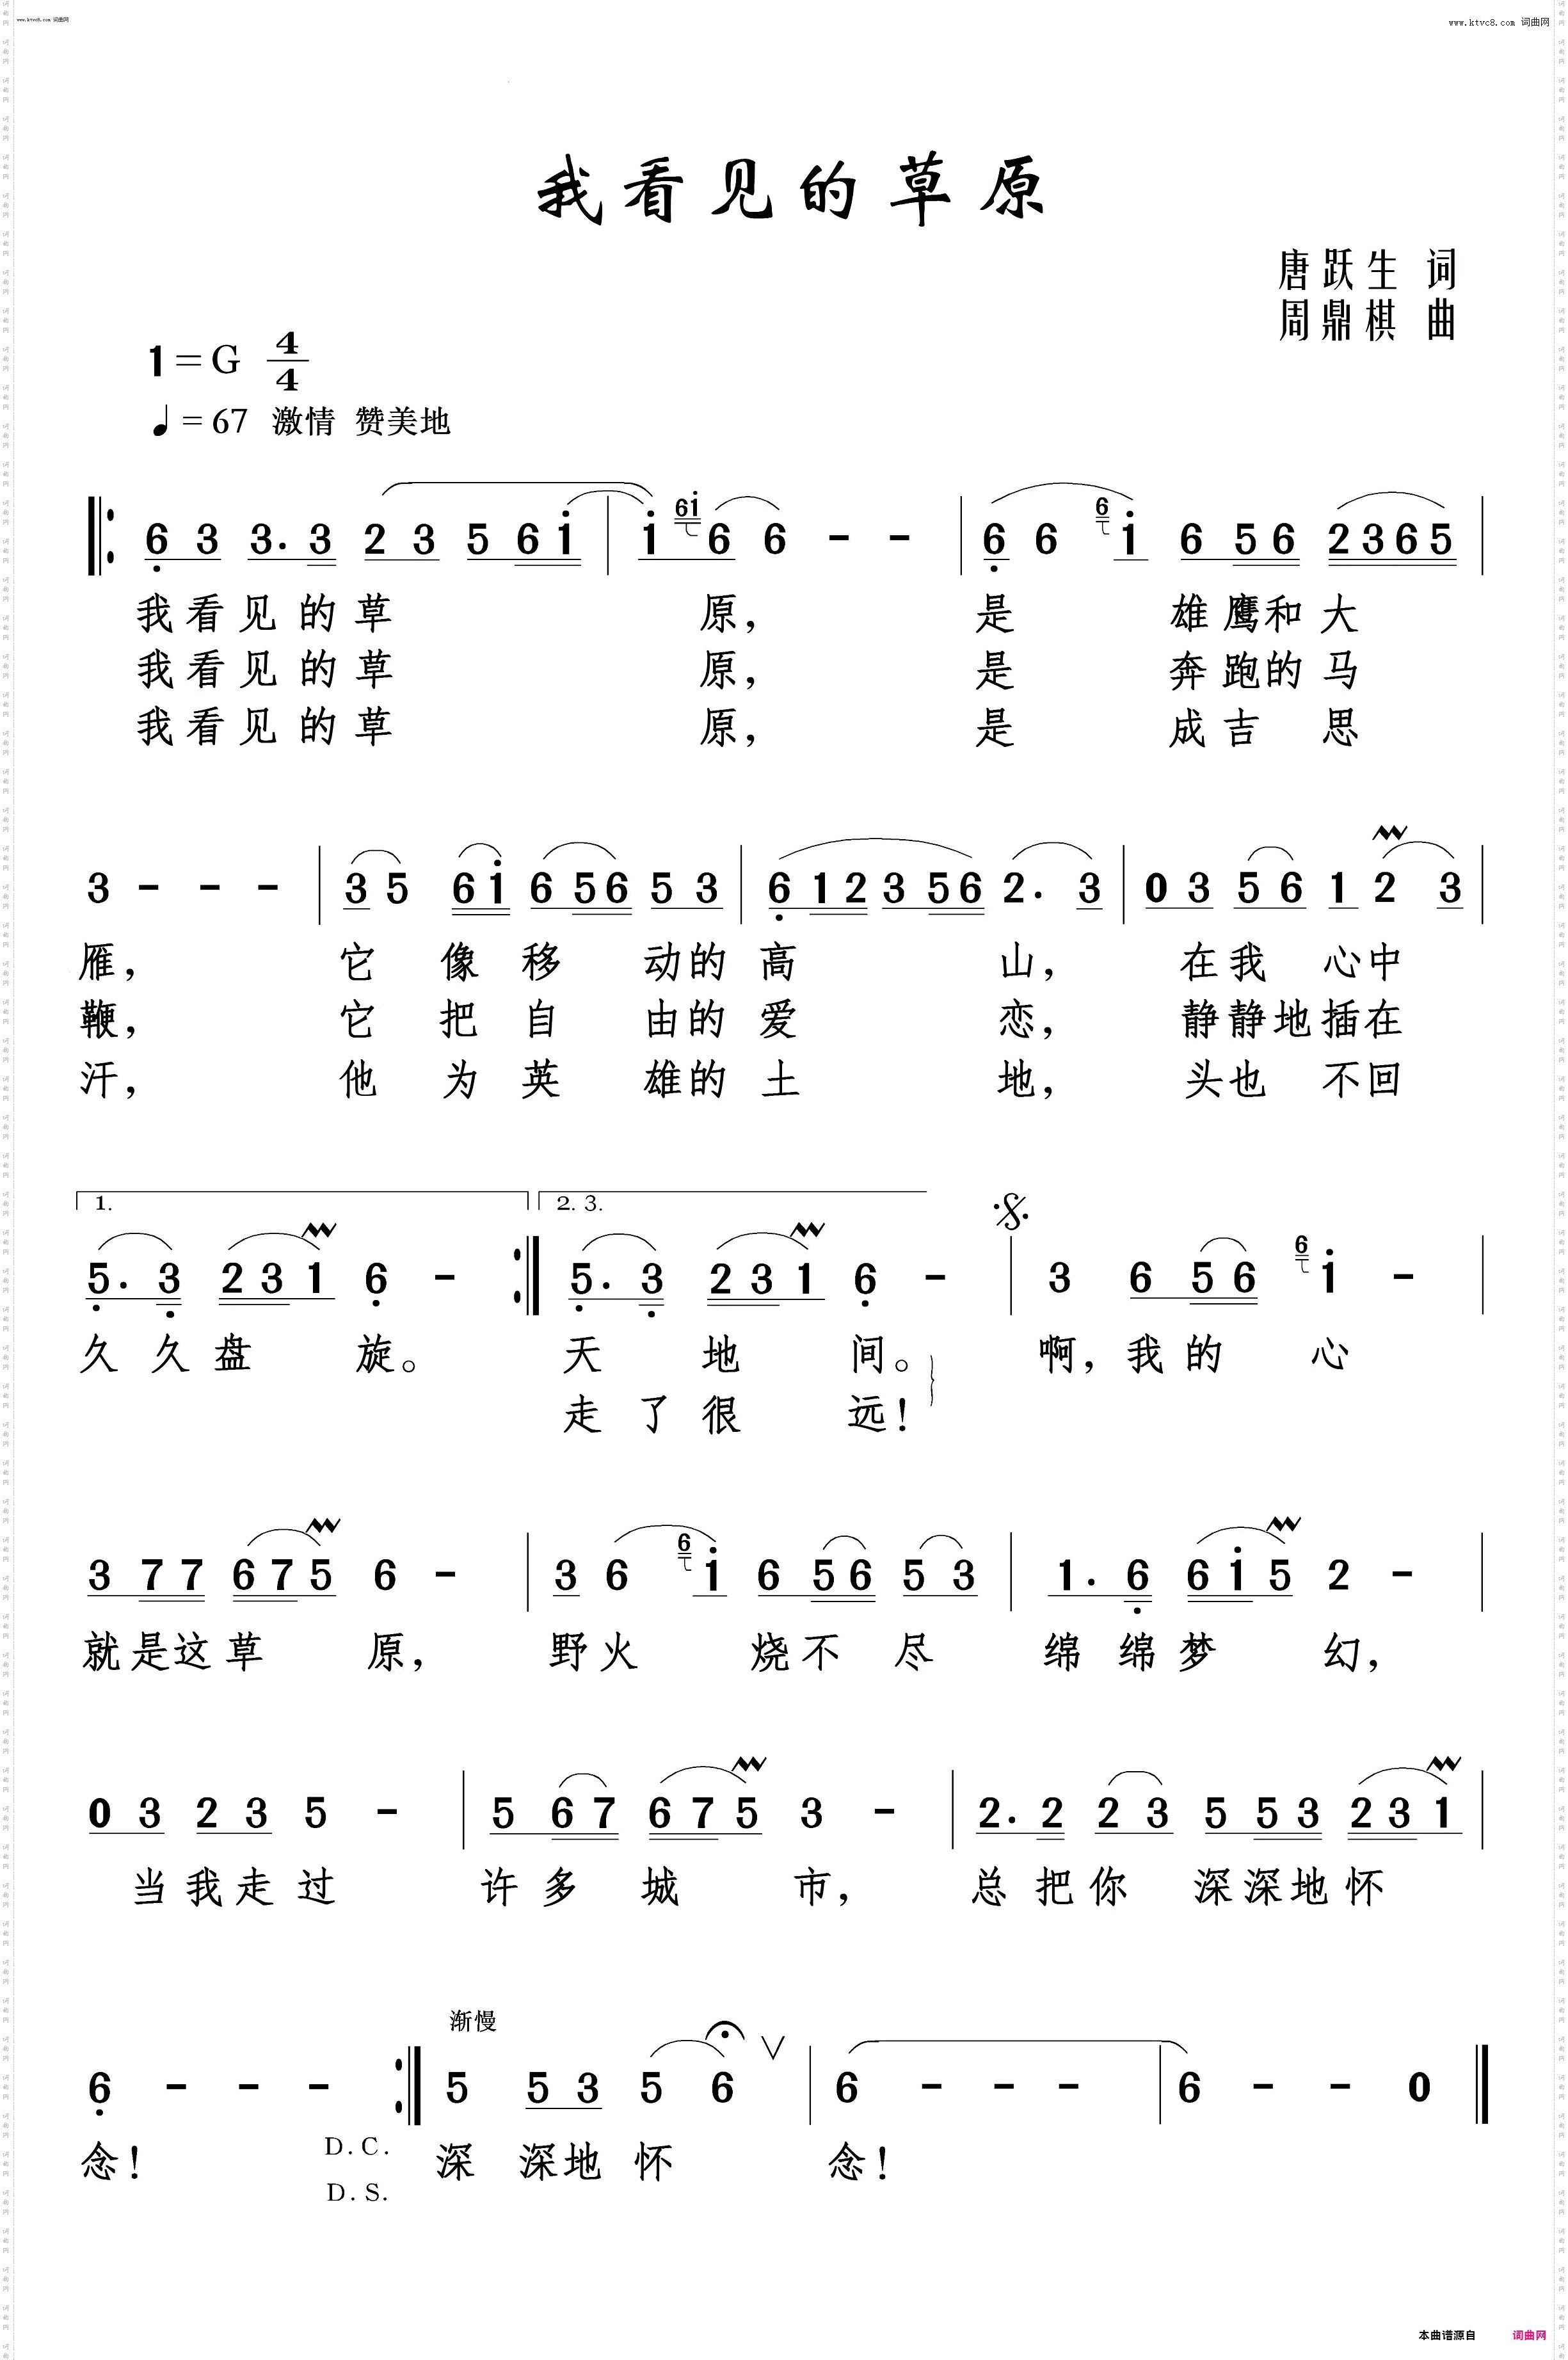 www.ktvc8.com 词曲网
www.ktvc8.com 词曲网
我看见的草原
唐跃生 词
周鼎棋 曲
1=G 4/4
♩=67 激情 赞美地
6 3 3. 3 2 3 5 6 i | i 6i 6 6 - - | 6 6 6 i 6 5 6 2 3 6 5 |
我看见的草 原， 是 雄鹰和大
我看见的草 原， 是 奔跑的马
我看见的草 原， 是 成吉 思
3 - - - | 3 5 6 i 6 5 6 5 3 | 6 1 2 3 5 6 2. 3 | 0 3 5 6 1 2 3 |
雁， 它 像 移 动的高 山， 在我 心中
鞭， 它 把 自 由的爱 恋， 静静地插在
汗， 他 为 英 雄的土 地， 头也 不回
1. 2. 3.
5. 3 2 3 1 6 - :| 5. 3 2 3 1 6 - | 3 6 5 6 6 i - |
久久盘 旋。 天 地 间。 啊，我的 心
走了很 远！
3 7 7 6 7 5 6 - | 3 6 6 i 6 5 6 5 3 | 1. 6 6 i 5 2 - |
就是这草 原， 野火 烧不尽 绵绵梦 幻，
0 3 2 3 5 - | 5 6 7 6 7 5 3 - | 2. 2 2 3 5 5 3 2 3 1 |
当我走过 许多城 市， 总把你 深深地怀
渐慢
6 - - - :| 5 5 3 5 6 ∨ | 6 - - - | 6 - - 0 ‖
念！ D.C. 深 深地怀 念！
D.S.
本曲谱源自 词曲网